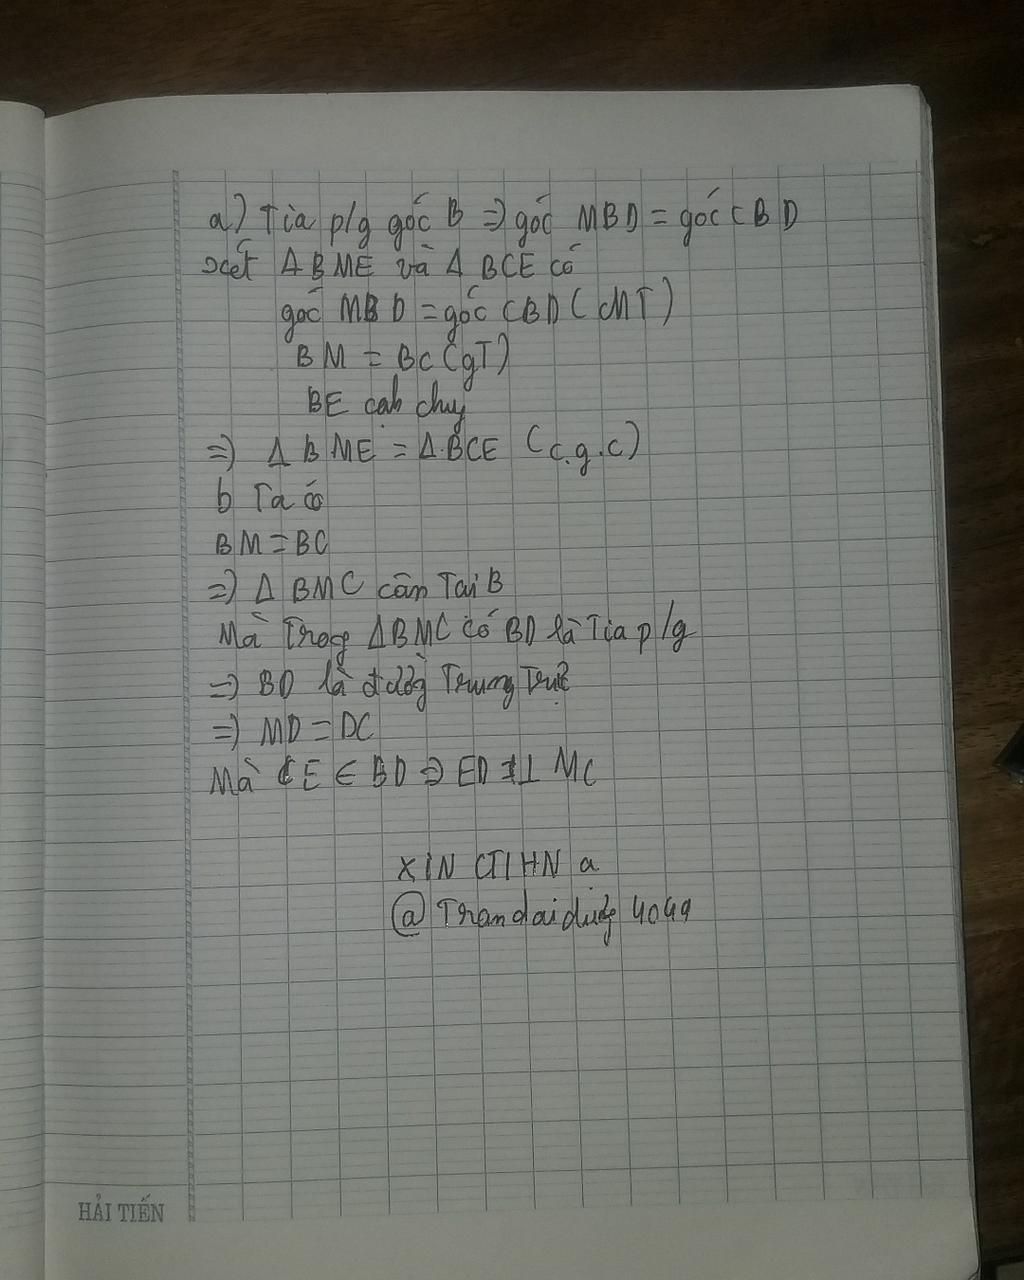 a) Tia p/g góc B => góc MBD = góc CBD
xét Δ BME và Δ BCE có
góc MBD = góc CBD (CMT)
BM = BC (gT)
BE cah chug
=> Δ BME = Δ BCE (c.g.c)
b Ta có
BM = BC
=> Δ BMC cân Tại B
Mà Trog ΔBMC có BD là Tia p/g
=> BD là đườg Trung Trực
=> MD = DC
Mà E ∈ BD => ED ⊥ MC
XIN CTLHN ạ
@Trandaiduög4049
HẢI TIẾN